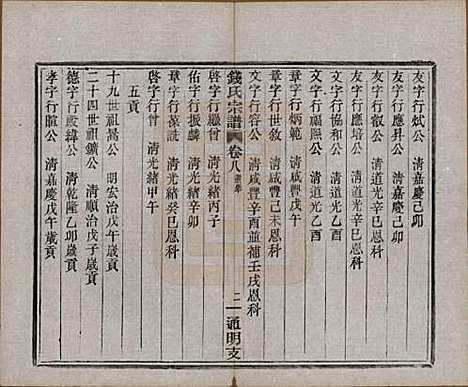 友字行斌公 清嘉慶己卯
友字行應昇公 清嘉慶己卯
友字行叡公 清道光辛卯恩科
友字行應培公 清道光乙酉
文字行協和公 清道光乙酉
文字行福熙公 清道光己酉
章字行炳範 清咸豐戊午
章字行世敘 清咸豐己未恩科
文字行容公 清咸豐辛酉並補壬戌恩科
錢氏宗譜 卷八 二 通明支
啓字行繼曾 清光緒丙子
佑字行振麟 清光緒辛卯
章字行葆誥 清光緒癸巳恩科
啓字行曾 清光緒甲午
五貢
十九世祖暠公 明宏治歲貢
二十四世祖鑛公 清順治戊子歲貢
德字行啟緯公 清乾隆乙卯歲貢
孝字行航公 清嘉慶戊午歲貢